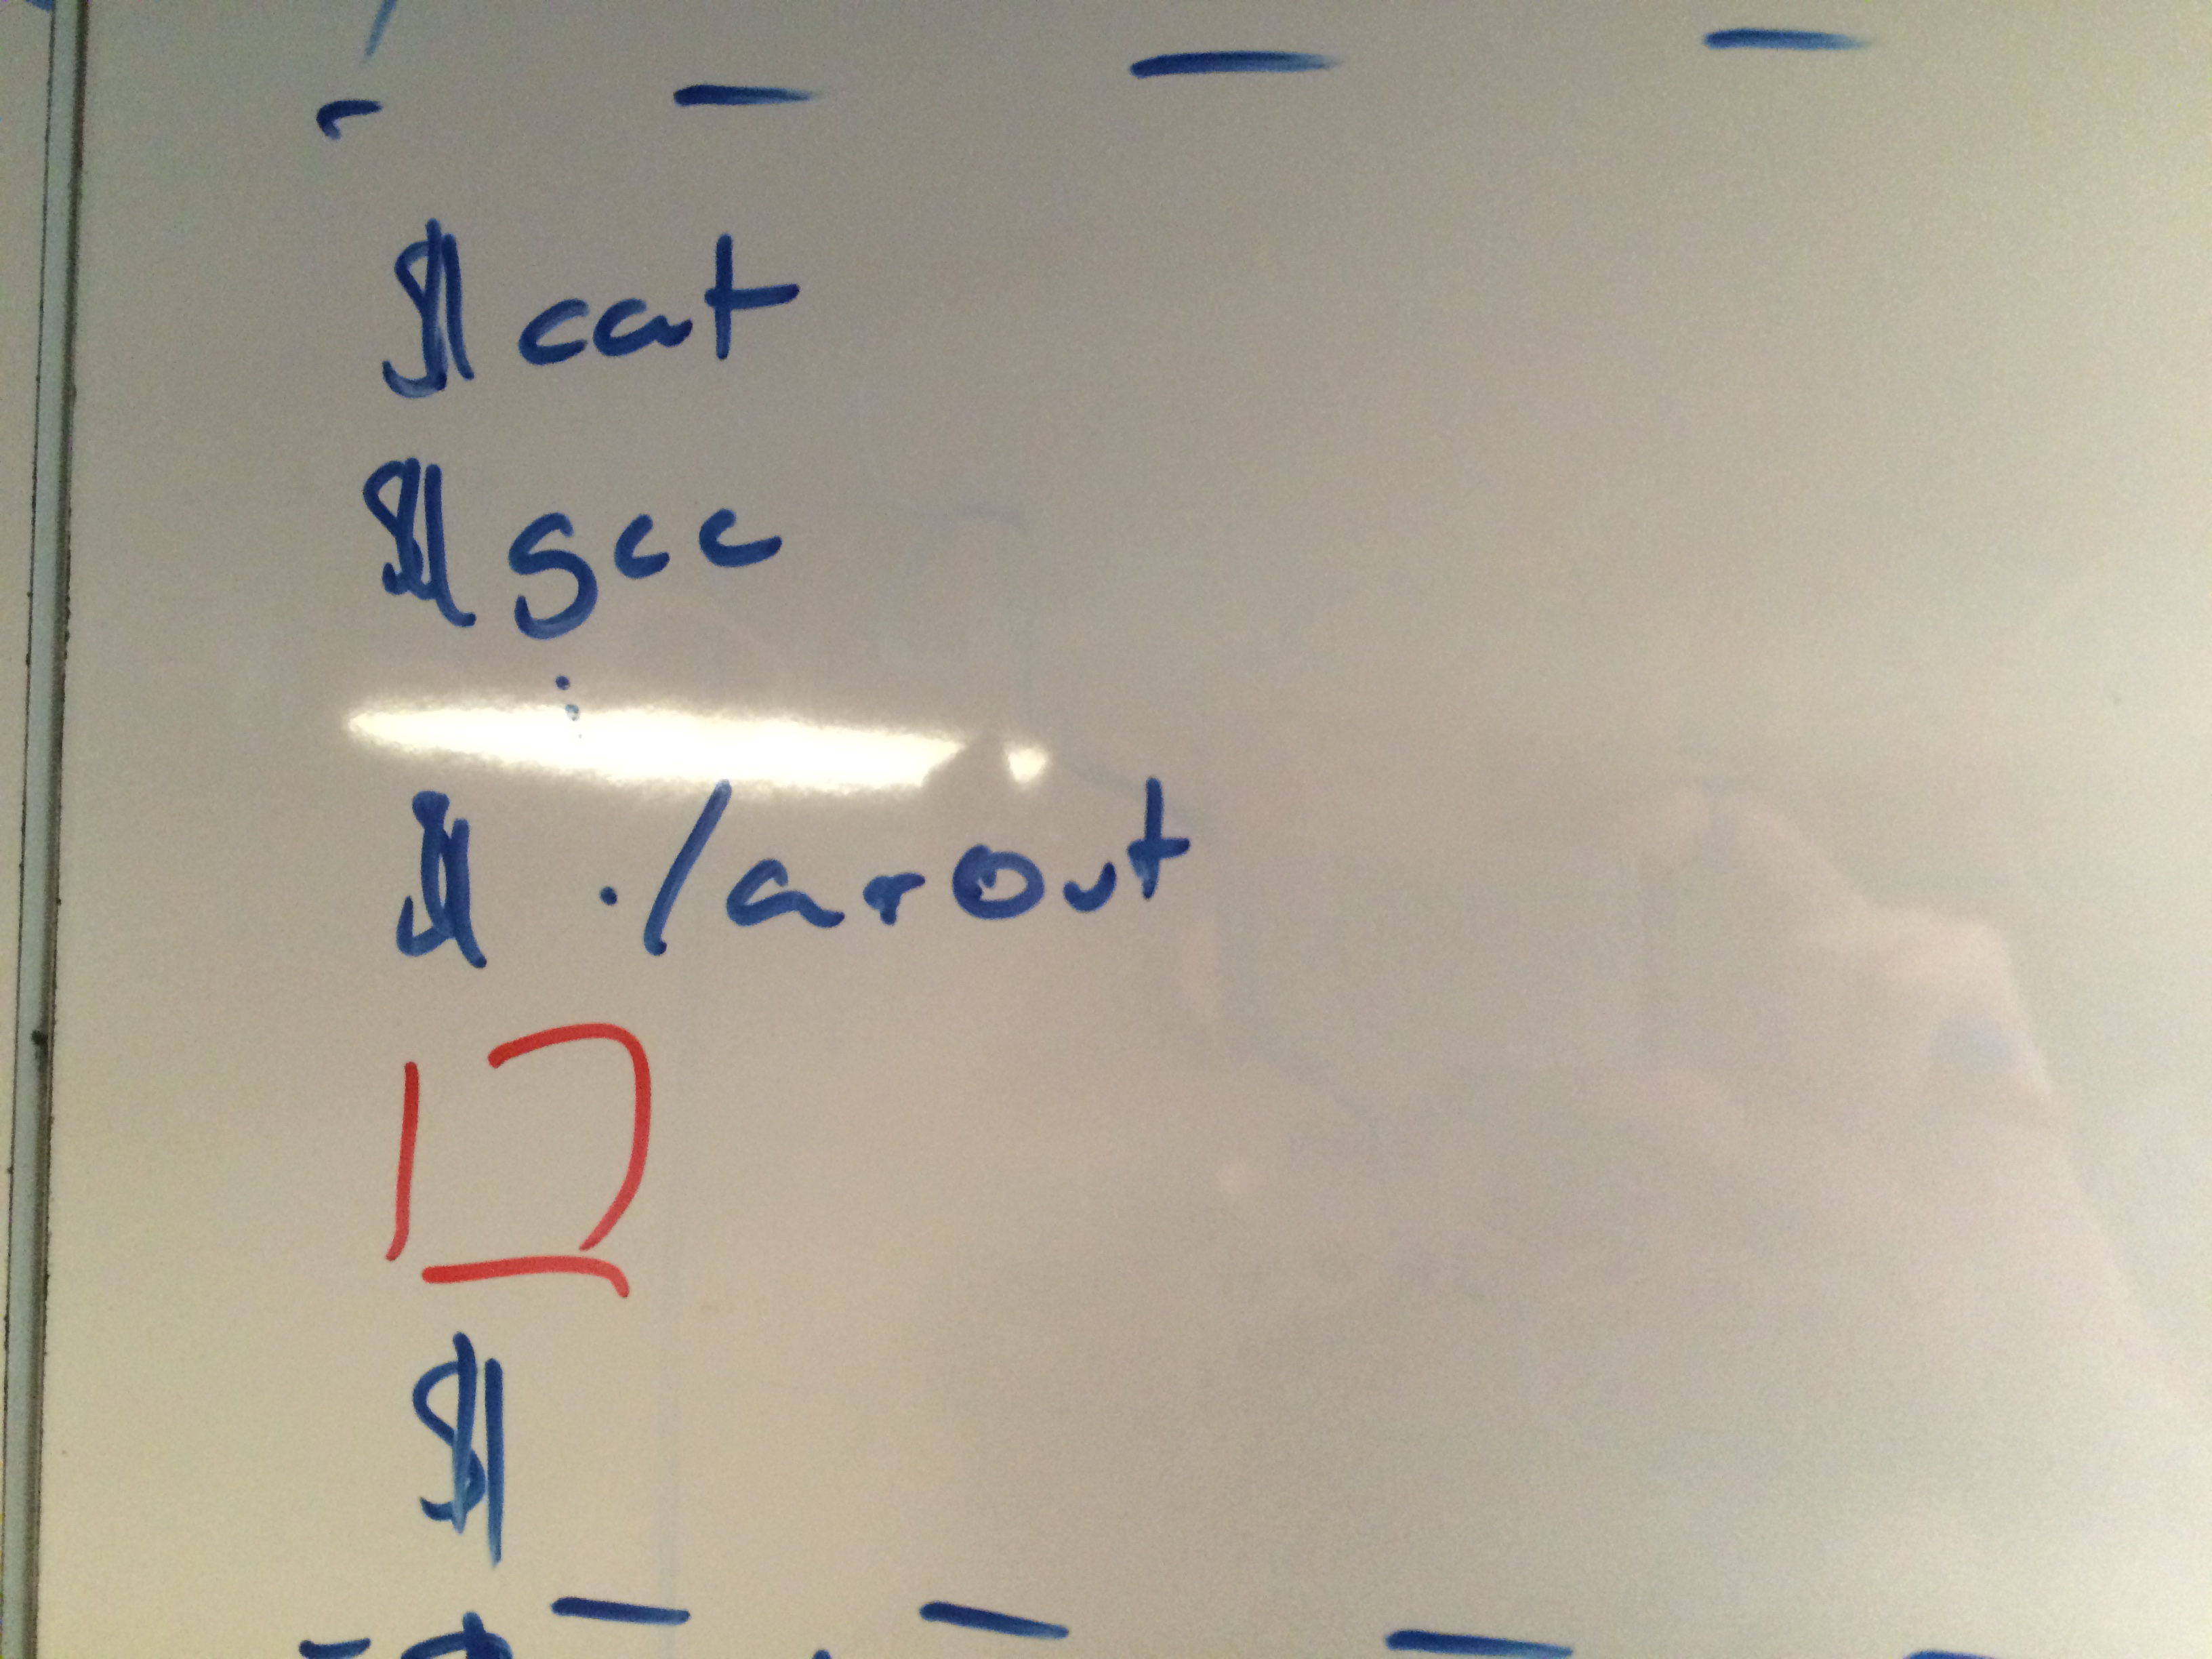 $ cat
$ gcc
⋮
$ ./a.out
$